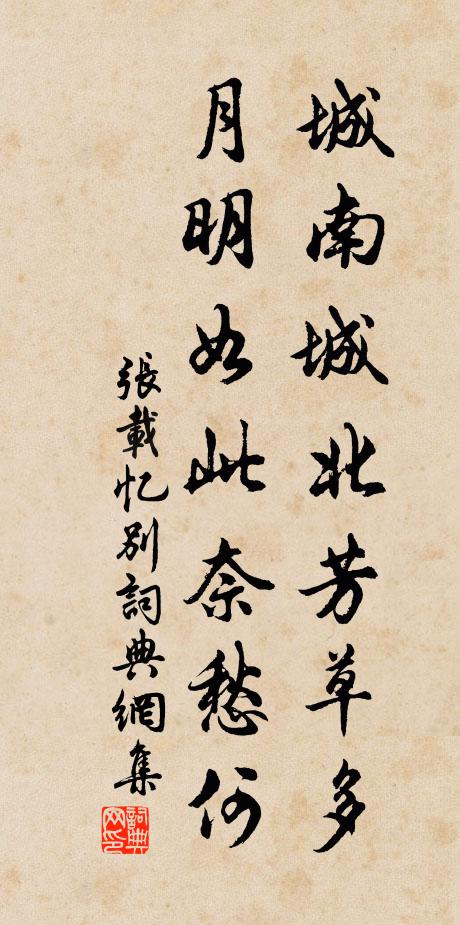 城南城北芳草多
月明如此奈愁何
張載忆别詞典網集
詞典網印